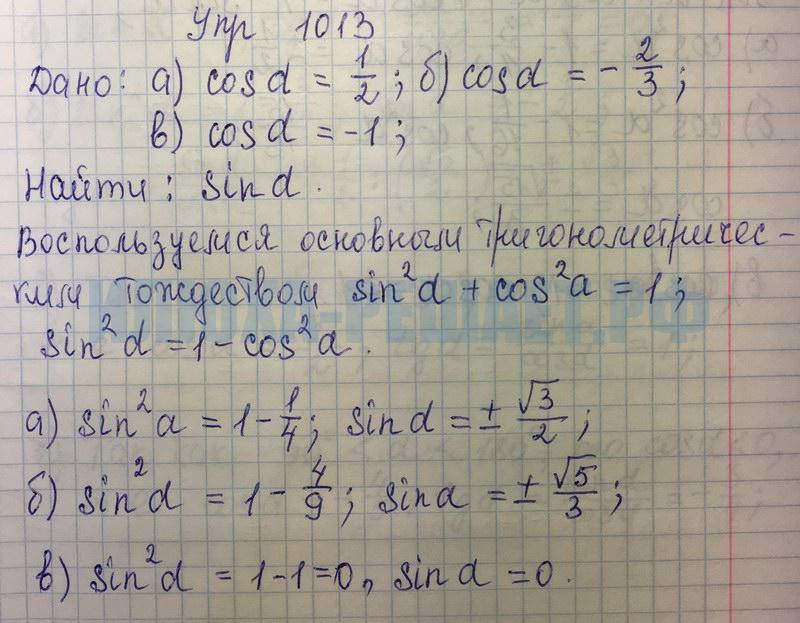 Упр 1013
Дано: а) cos α = 1/2; б) cos α = - 2/3;
в) cos α = -1;
Найти: sin α.
Воспользуемся основным тригонометричес-
ким тождеством sin²α + cos²α = 1;
sin²α = 1 - cos²α.
а) sin²α = 1 - 1/4; sin α = ± √3/2;
б) sin²α = 1 - 4/9; sin α = ± √5/3;
в) sin²α = 1-1=0, sin α = 0.